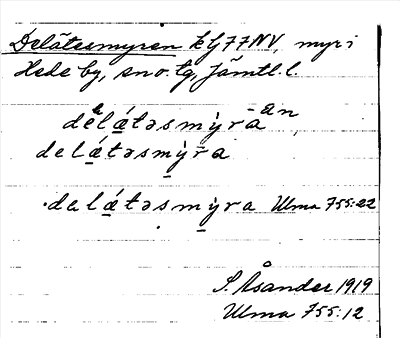 Delätesmyren k GJ 77 NV, myr i
Hede by, sn o. tg, Jämtl. l.
delǽtəsmỳrān,
delǽtəsmỳra
delǽtəsmỳra Ulma 755:22
S. Åsander 1919
Ulma 755:12